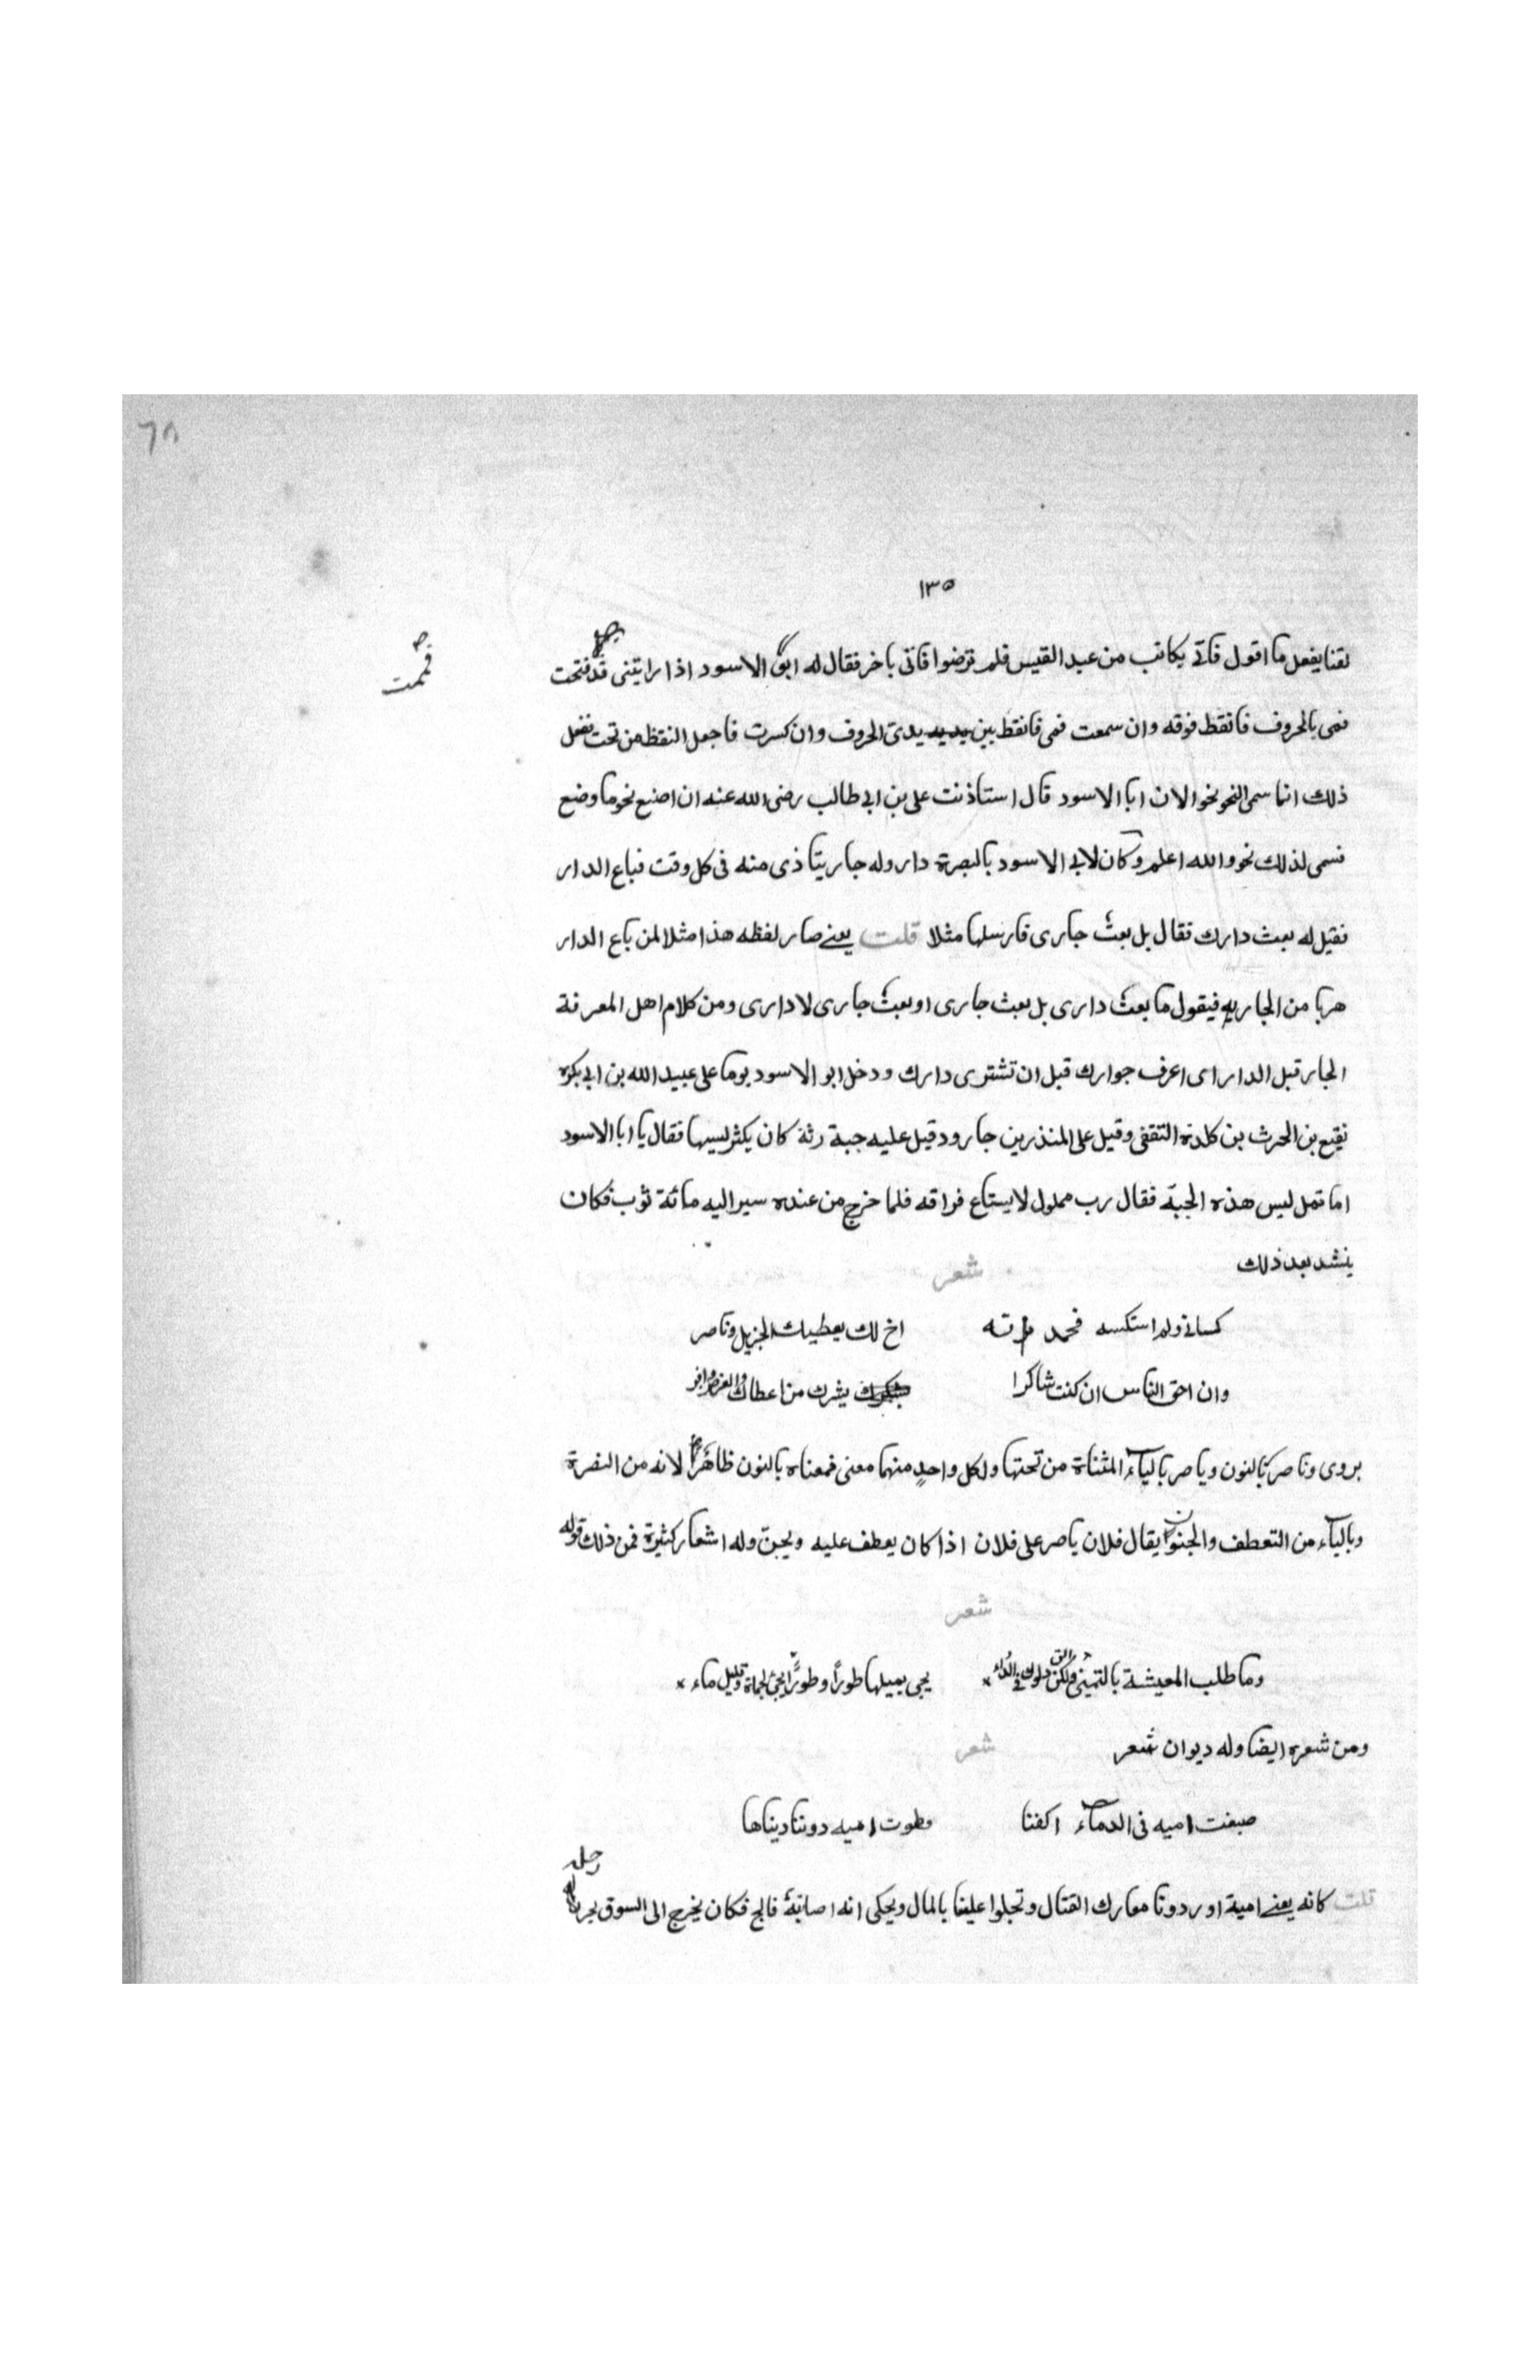 ٦٨
١٣٥
لقنا يفعل ما اقول فاتى بكاتب من عبد القيس فلم ترضوا فاتى باخر فقال له ابو الاسود اذا رايتنى قد فتحت
فممت
فمى بالحروف فانقط فوقه وان سمعت فمى فانقط بين يدى الحروف وان كسرت فاجعل النقط من تحت نفعل
ذلك انما سمى النحو نحوا لان ابا الاسود قال استاذنت على بن ابى طالب رضى الله عنه ان اصنع نحو ما وضع
فسمى لذلك نحو والله اعلم وكان لابى الاسود بالبصرة دار وله جار يتاذى منه فى كل وقت فباع الدار
فقيل له بعت دارك فقال بل بعت جارى فارسلها مثلا قلت يعنى صار لفظه هذا مثلا لمن باع الدار
هربا من الجار به فيقول ما بعت دارى بل بعت جارى او بعت جارى لا دارى ومن كلام اهل المعرفة
الجار قبل الدار اى اعرف جوارك قبل ان تشترى دارك ودخل ابو الاسود يوما على عبيد الله بن ابى بكره
نقيع بن الحرث بن كلدة الثقفى وقيل على المنذر بن جارود قيل عليه جبة رثة كان يكثر لبسها فقال يا ابا الاسود
اما تمل لبس هذه الجبة فقال رب مملول لا يستاع فراقه فلما خرج من عنده سير اليه مائة ثوب فكان
ينشد بعد ذلك
شعر
كسانى ولم استكسه فحمدته اخ لك يعطيك الجزيل وناصر
وان احق الناس ان كنت شاكرا يشرك من اعطاك والعرض وافر
يروى وناصر بالنون وياصر بالياء المثناة من تحتها ولكل واحد منهما معنى فمعناه بالنون ظاهر لانه من النصرة
وبالياء من التعطف والجنون يقال فلان ياصر على فلان اذا كان يعطف عليه ويحبن وله اشعار كثيرة فمن ذلك قوله
شعر
وما طلب المعيشة بالتمنى ولكن الق دلوك فى الدلاء
يجى بميلها طورا وطورا يجئ بحماة وقليل ماء
ومن شعره ايضا وله ديوان شعر
شعر
صبغت اميه فى الدماء اكفنا وطوت اميه دوننا دنياها
قلت كانه يعنى امية اوردونا معارك القتال وتجلوا علينا بالمال ويحكى انه اصابة فالج فكان يخرج الى السوق يجر رجله